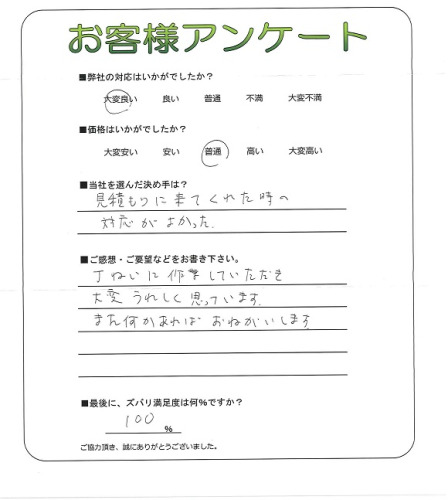 お客様アンケート
■弊社の対応はいかがでしたか？
大変良い 良い 普通 不満 大変不満
■価格はいかがでしたか？
大変安い 安い 普通 高い 大変高い
■当社を選んだ決め手は？
見積もりに来てくれた時の
対応がよかった.
■ご感想・ご要望などをお書き下さい。
丁ねいに作業していただき
大変うれしく思っています.
また何かあればおねがいします
■最後に、ズバリ満足度は何％ですか？
100
％
ご協力頂き、誠にありがとうございました。